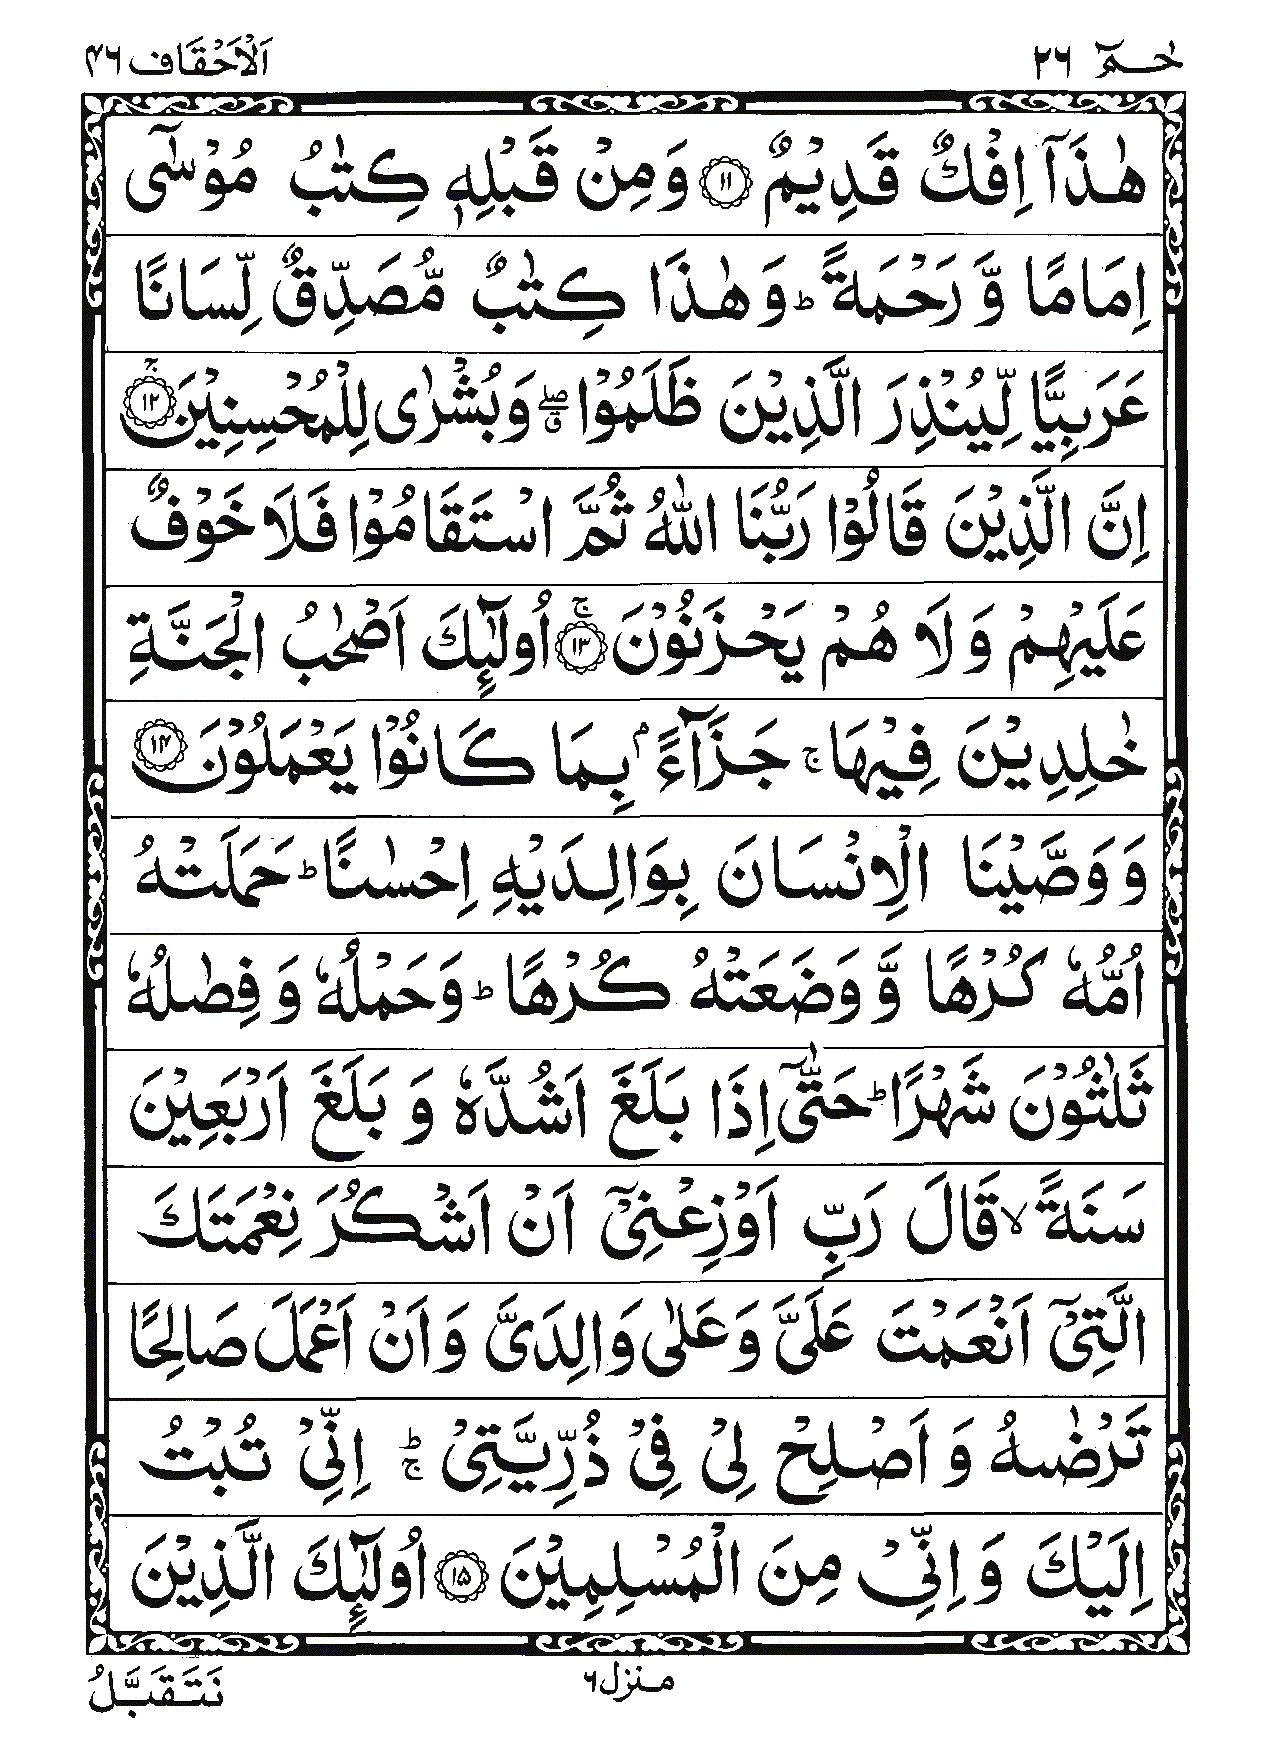 حٰـمٓ ٢٦
اَلْاَحْقَاف ٤٦
هٰذَاۤ اِفْكٌ قَدِيْمٌ ۝١١ وَمِنْ قَبْلِهٖ كِتٰبُ مُوْسٰۤى
اِمَامًا وَّ رَحْمَةً ؕ وَهٰذَا كِتٰبٌ مُّصَدِّقٌ لِّسَانًا
عَرَبِيًّا لِّيُنْذِرَ الَّذِيْنَ ظَلَمُوْا ۖۗ وَبُشْرٰى لِلْمُحْسِنِيْنَ ۝١٢ۚ
اِنَّ الَّذِيْنَ قَالُوْا رَبُّنَا اللّٰهُ ثُمَّ اسْتَقَامُوْا فَلَا خَوْفٌ
عَلَيْهِمْ وَ لَا هُمْ يَحْزَنُوْنَ ۝١٣ۚ اُولٰٓئِكَ اَصْحٰبُ الْجَنَّةِ
خٰلِدِيْنَ فِيْهَا ۚ جَزَآءًۢ بِمَا كَانُوْا يَعْمَلُوْنَ ۝١٤
وَوَصَّيْنَا الْاِنْسَانَ بِوَالِدَيْهِ اِحْسٰنًا ؕ حَمَلَتْهُ
اُمُّهٗ كُرْهًا وَّ وَضَعَتْهُ كُرْهًا ؕ وَحَمْلُهٗ وَ فِصٰلُهٗ
ثَلٰثُوْنَ شَهْرًا ؕ حَتّٰۤى اِذَا بَلَغَ اَشُدَّهٗ وَ بَلَغَ اَرْبَعِيْنَ
سَنَةً ۙ قَالَ رَبِّ اَوْزِعْنِيْۤ اَنْ اَشْكُرَ نِعْمَتَكَ
الَّتِيْۤ اَنْعَمْتَ عَلَيَّ وَعَلٰى وَالِدَيَّ وَ اَنْ اَعْمَلَ صَالِحًا
تَرْضٰىهُ وَ اَصْلِحْ لِيْ فِيْ ذُرِّيَّتِيْ ؕۚ اِنِّيْ تُبْتُ
اِلَيْكَ وَ اِنِّيْ مِنَ الْمُسْلِمِيْنَ ۝١٥ اُولٰٓئِكَ الَّذِيْنَ
منزل ٦
نَتَقَبَّلُ